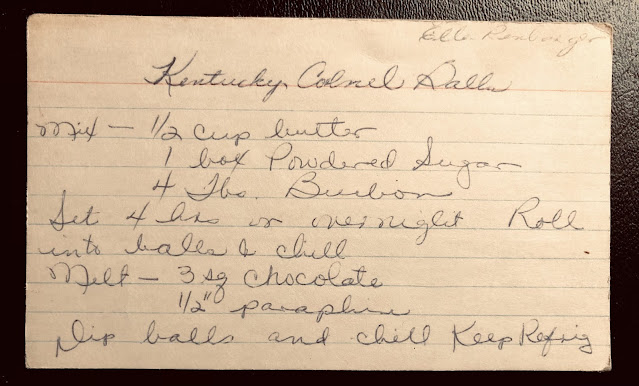 Kentucky Colnel Balls
Mix - 1/2 cup butter
1 box Powdered Sugar
4 Tbs. Burbion
Set 4 hrs or overnight Roll
into balls & chill
Melt - 3 sq chocolate
1/2" paraphin
Dip balls and chill Keep Refrig